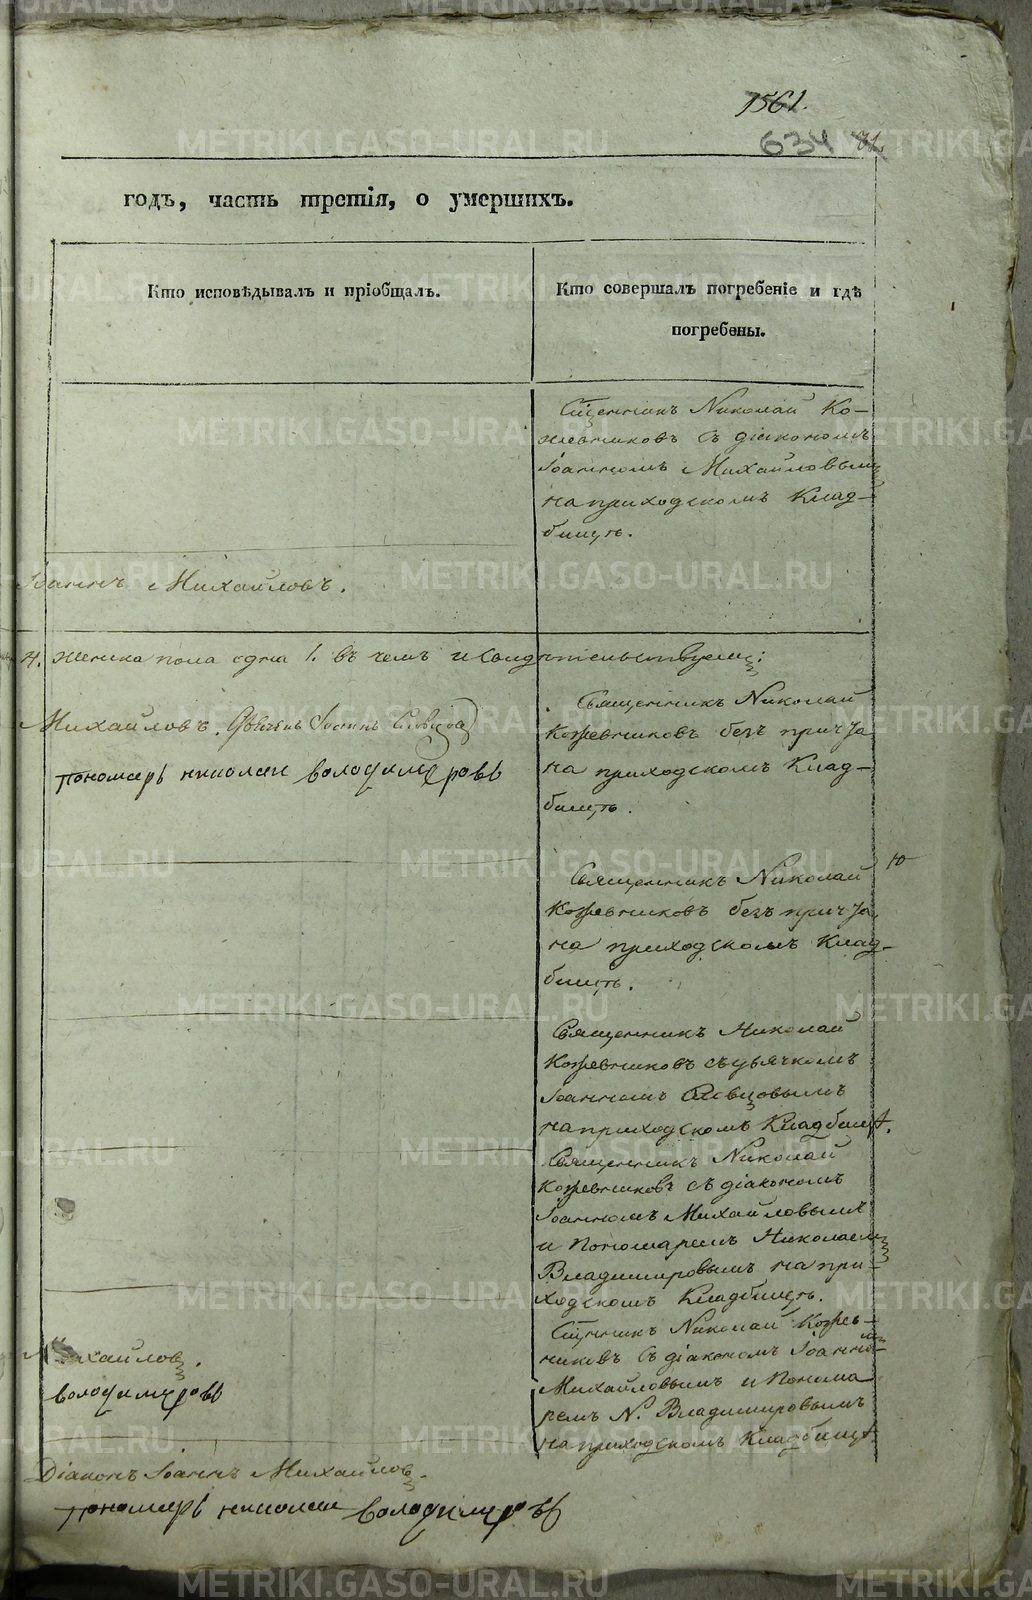 1561.
634
годъ, часть третія, о умершихъ.
Кто исповѣдывалъ и пріобщалъ.
Кто совершалъ погребеніе и гдѣ
погребены.
Сщенникъ Николай Ко-
жевниковъ съ діакономъ
Іоанномъ Михайловымъ
на приходскомъ Клад-
бищѣ.
Іоаннъ Михайловъ.
женска пола одна 1. въ чемъ и свидѣтельствуемъ:
Михайловъ. Дьячекъ Іоаннъ Словцовъ
пономарь николай володимеровъ
Священникъ Николай
Кожевниковъ безъ причта
на приходскомъ Клад-
бищѣ.
Священникъ Николай
Кожевниковъ безъ причта,
на приходскомъ Клад-
бищѣ.
Священникъ Николай
Кожевниковъ съ дьячкомъ
Іоанномъ Словцовымъ
на приходскомъ Кладбищѣ.
Священникъ Николай
Кожевниковъ съ діакономъ
Іоанномъ Михайловымъ
и Пономаремъ Николаемъ
Владимировымъ на при-
ходскомъ Кладбищѣ.
Сщенникъ Николай Кожев-
никовъ съ діакономъ Іоанномъ
Михайловымъ и Понома
ремъ Н. Владимировымъ
на приходскомъ Кладбищѣ.
Михайловъ.
володимеровъ
Діаконъ Іоаннъ Михайловъ.
пономарь николай володимеровъ
METRIKI.GASO-URAL.RU